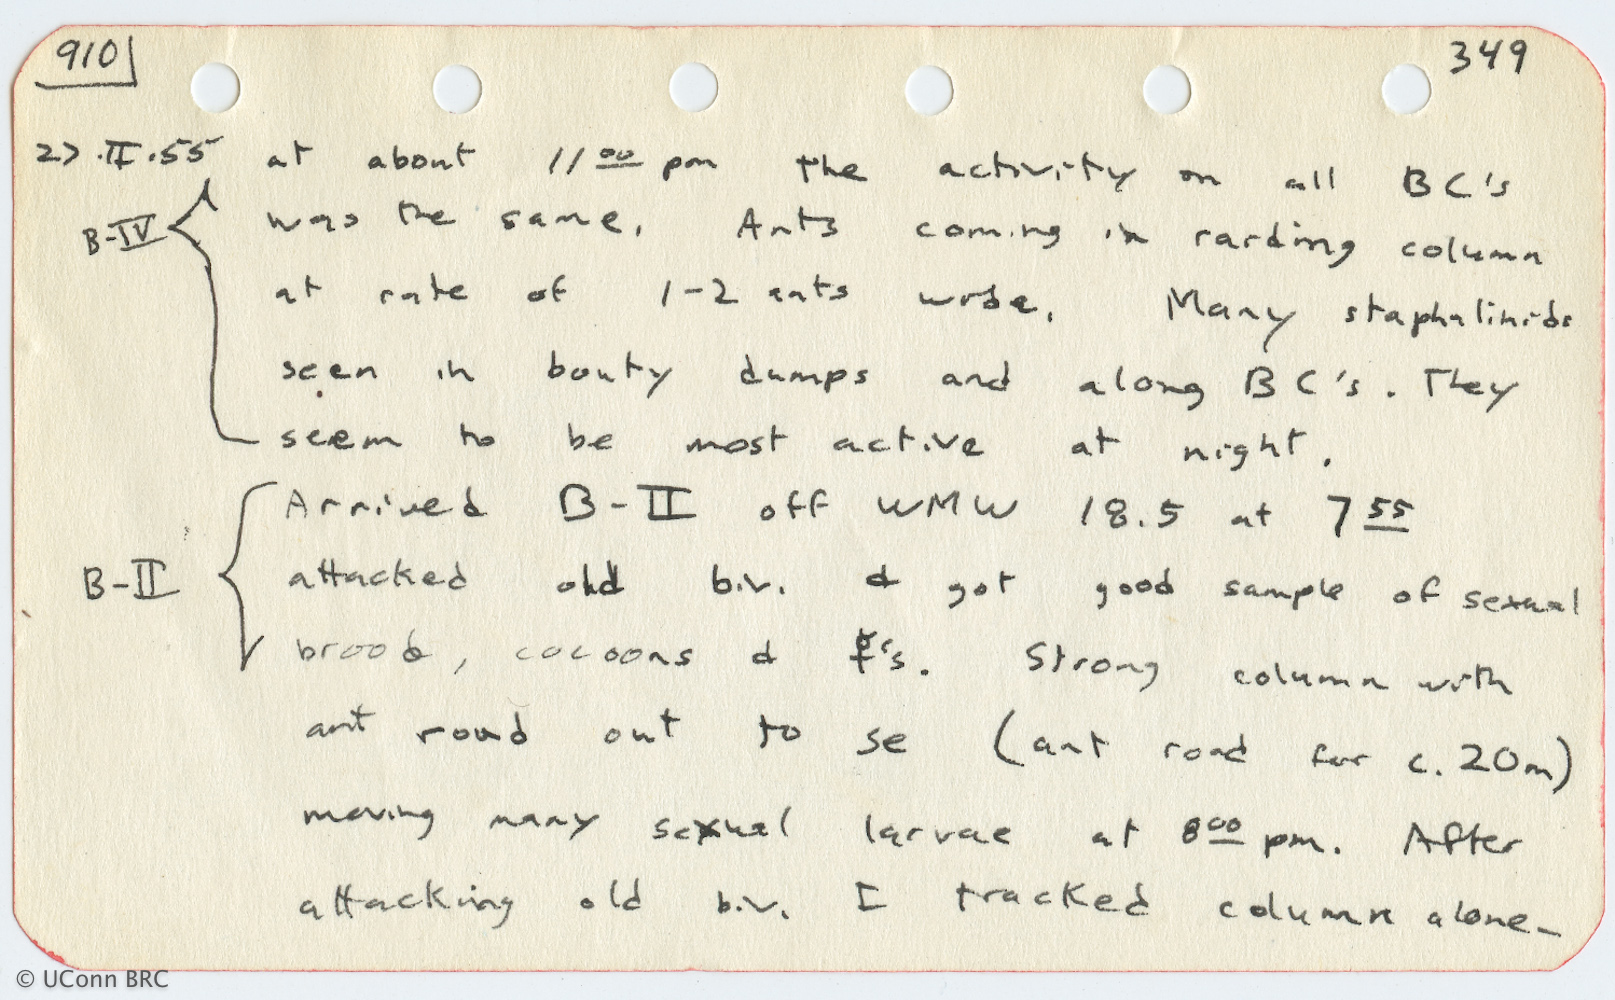 910
349
27.II.55 at about 11 00 pm the activity on all BC's
B-IV was the same. Ants coming in raiding column
at rate of 1-2 ants wide. Many staphalinids
seen in bouty dumps and along BC's. They
seem to be most active at night.
Arrived B-II off WMW 18.5 at 7 55
B-II attacked old b.v. & got good sample of sexual
brood, cocoons & ☿'s. Strong column with
ant road out to se (ant road for c. 20m)
moving many sexual larvae at 8 00 pm. After
attacking old b.v. I tracked column alone-
© UConn BRC